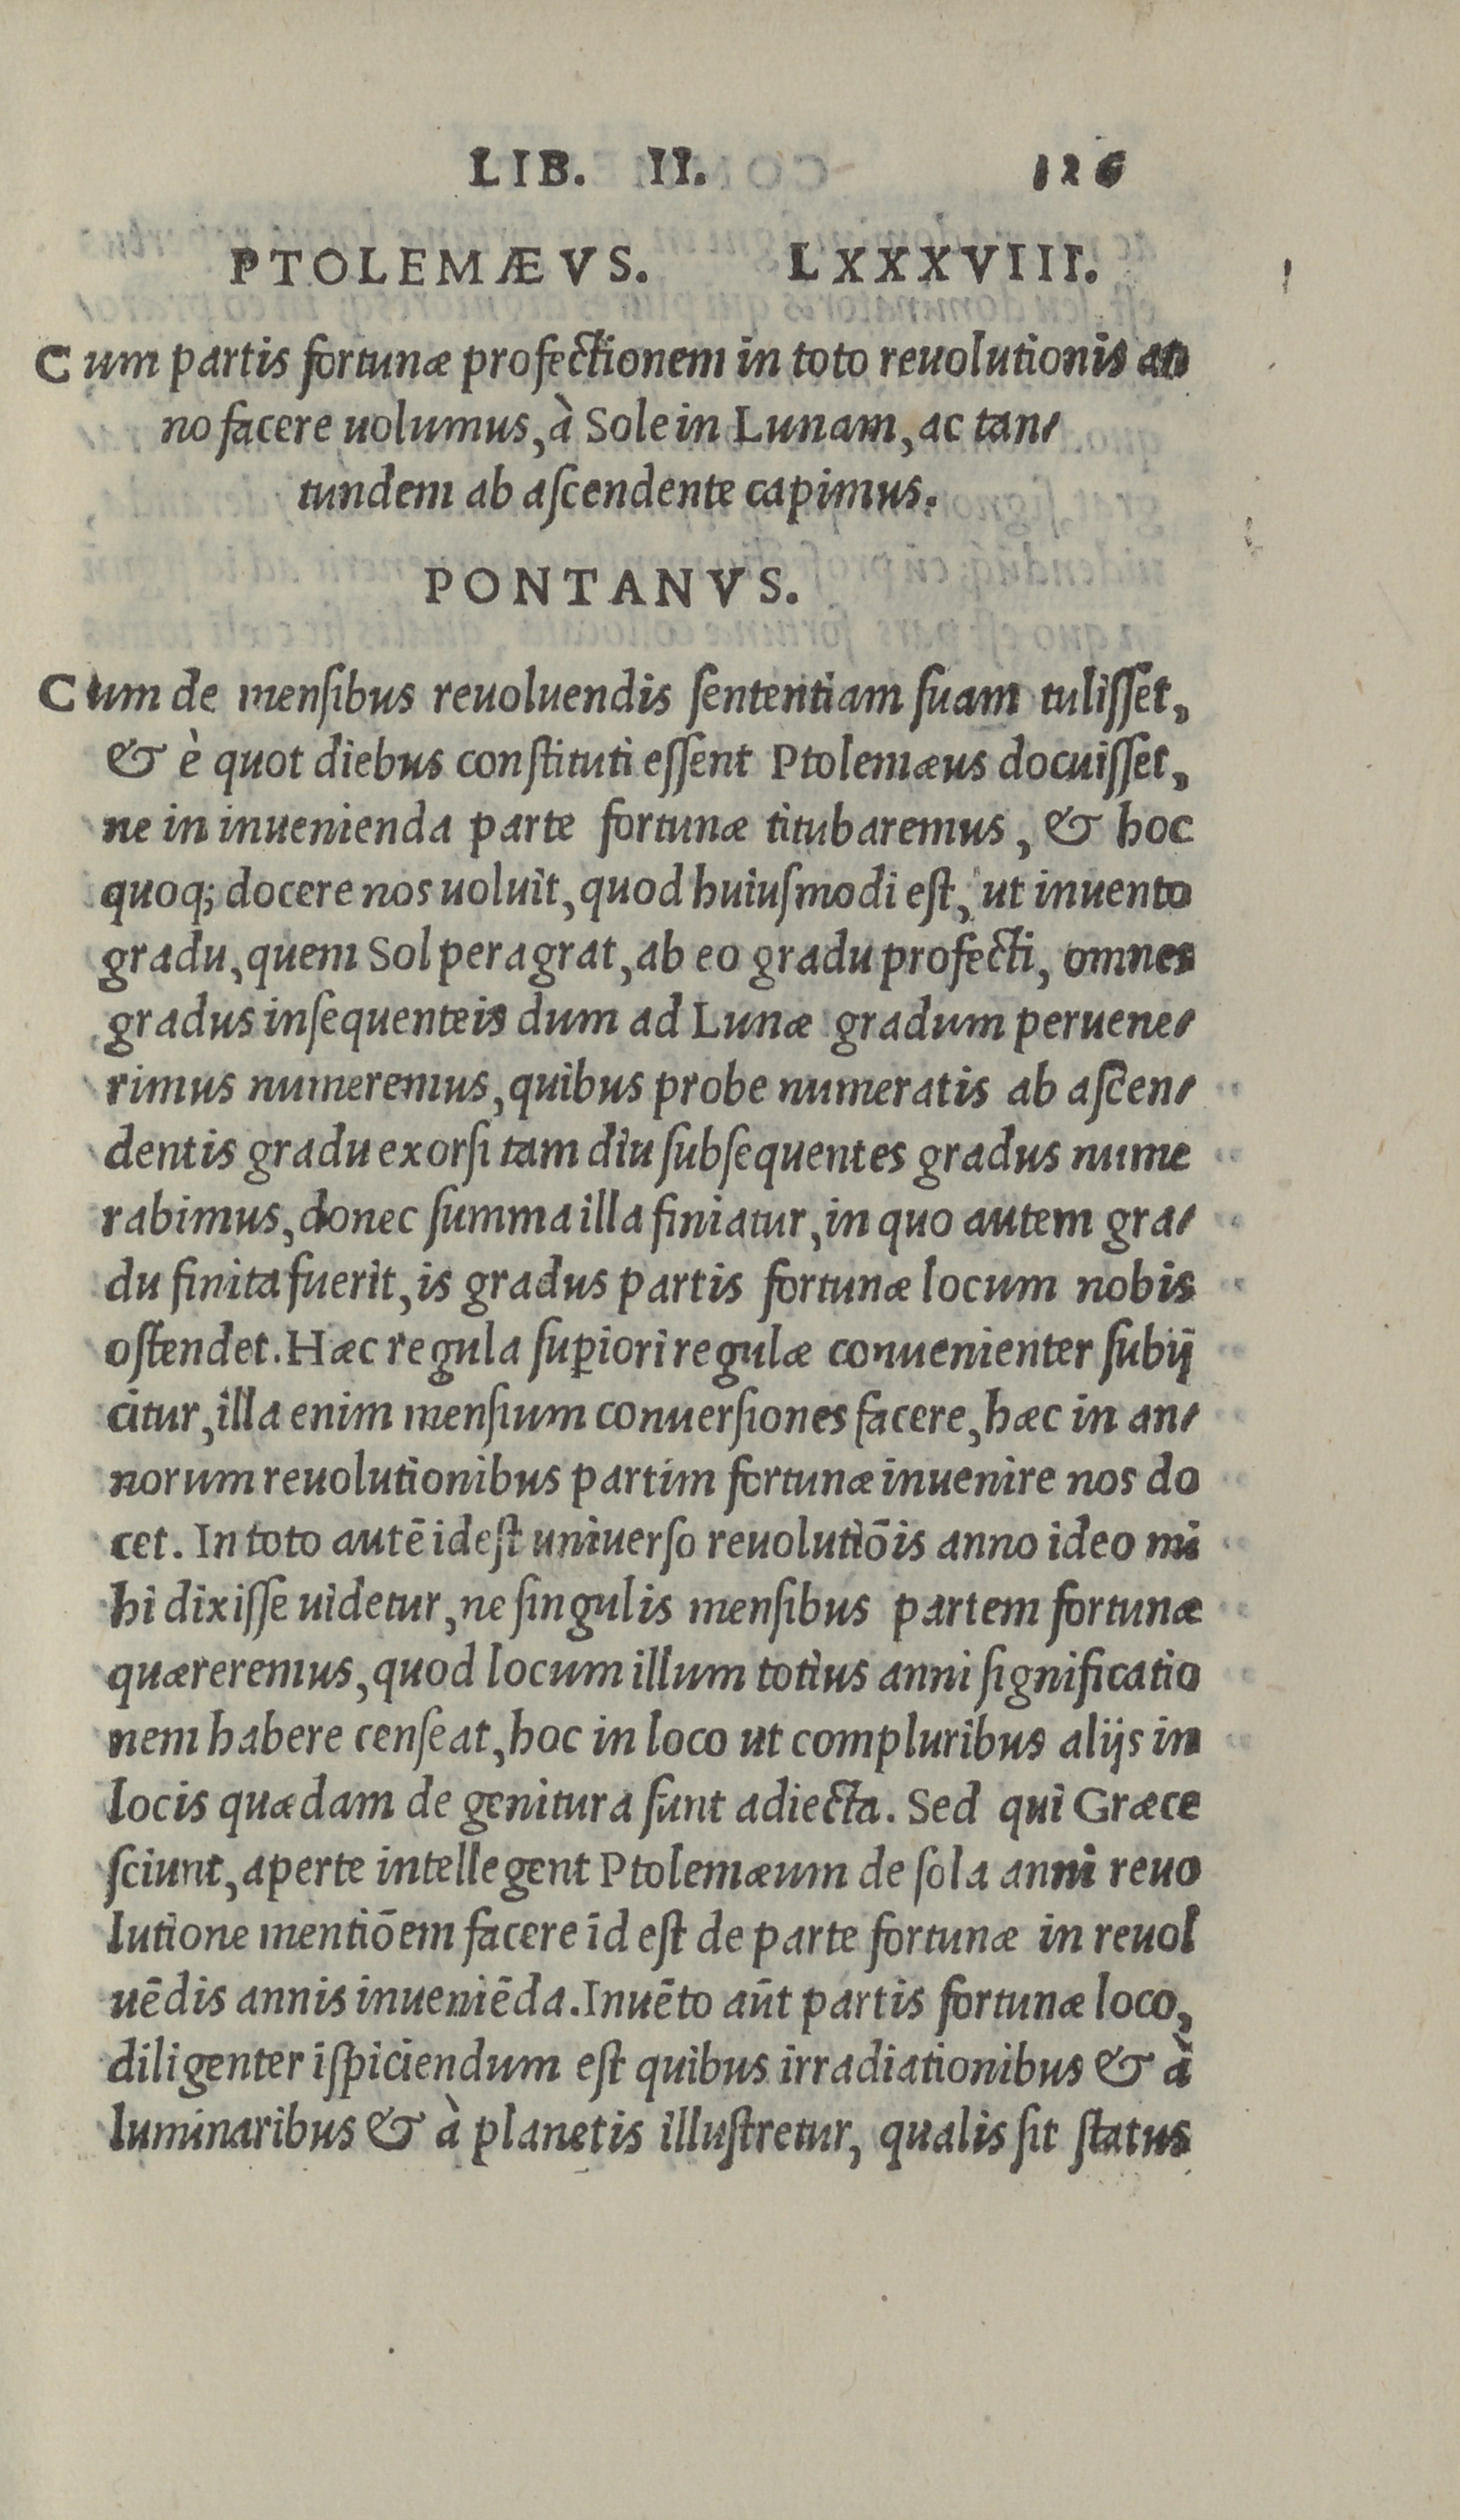 LIB. II. 126
PTOLEMÆVS. LXXXVIII.
Cum partis fortunæ profectionem in toto reuolutionis an
no facere uolumus, à Sole in Lunam, ac tan/
tundem ab aſcendente capimus.
PONTANVS.
Cum de menſibus reuoluendis ſententiam ſuam tuliſſet,
& è quot diebus conſtituti eſſent Ptolemæus docuiſſet,
ne in inuenienda parte fortunæ titubaremus, & hoc
quoq; docere nos uoluit, quod huiuſmodi eſt, ut inuento
gradu, quem Sol peragrat, ab eo gradu profecti, omnes
gradus inſequenteis dum ad Lunæ gradum peruene/
rimus numeremus, quibus probe numeratis ab aſcen/
dentis gradu exorſi tam diu ſubſequentes gradus nume
rabimus, donec ſumma illa finiatur, in quo autem gra/
du finita fuerit, is gradus partis fortunæ locum nobis
oſtendet. Hæc regula ſuꝑiori regulæ conuenienter ſubij
citur, illa enim menſium conuerſiones facere, hæc in an/
norum reuolutionibus partim fortunæ inuenire nos do
cet. In toto autē id eſt uniuerſo reuolutiōis anno ideo mi
hi dixiſſe uidetur, ne ſingulis menſibus partem fortunæ
quæreremus, quod locum illum totius anni ſignificatio
nem habere cenſeat, hoc in loco ut compluribus alijs in
locis quædam de genitura ſunt adiecta. Sed qui Græce
ſciunt, aperte intellegent Ptolemæum de ſola anni reuo
lutione mentiōem facere id eſt de parte fortunæ in reuol
uēdis annis inueniēda. Inuēto aūt partis fortunæ loco,
diligenter iſpiciendum eſt quibus irradiationibus & à
luminaribus & à planetis illuſtretur, qualis ſit ſtatus